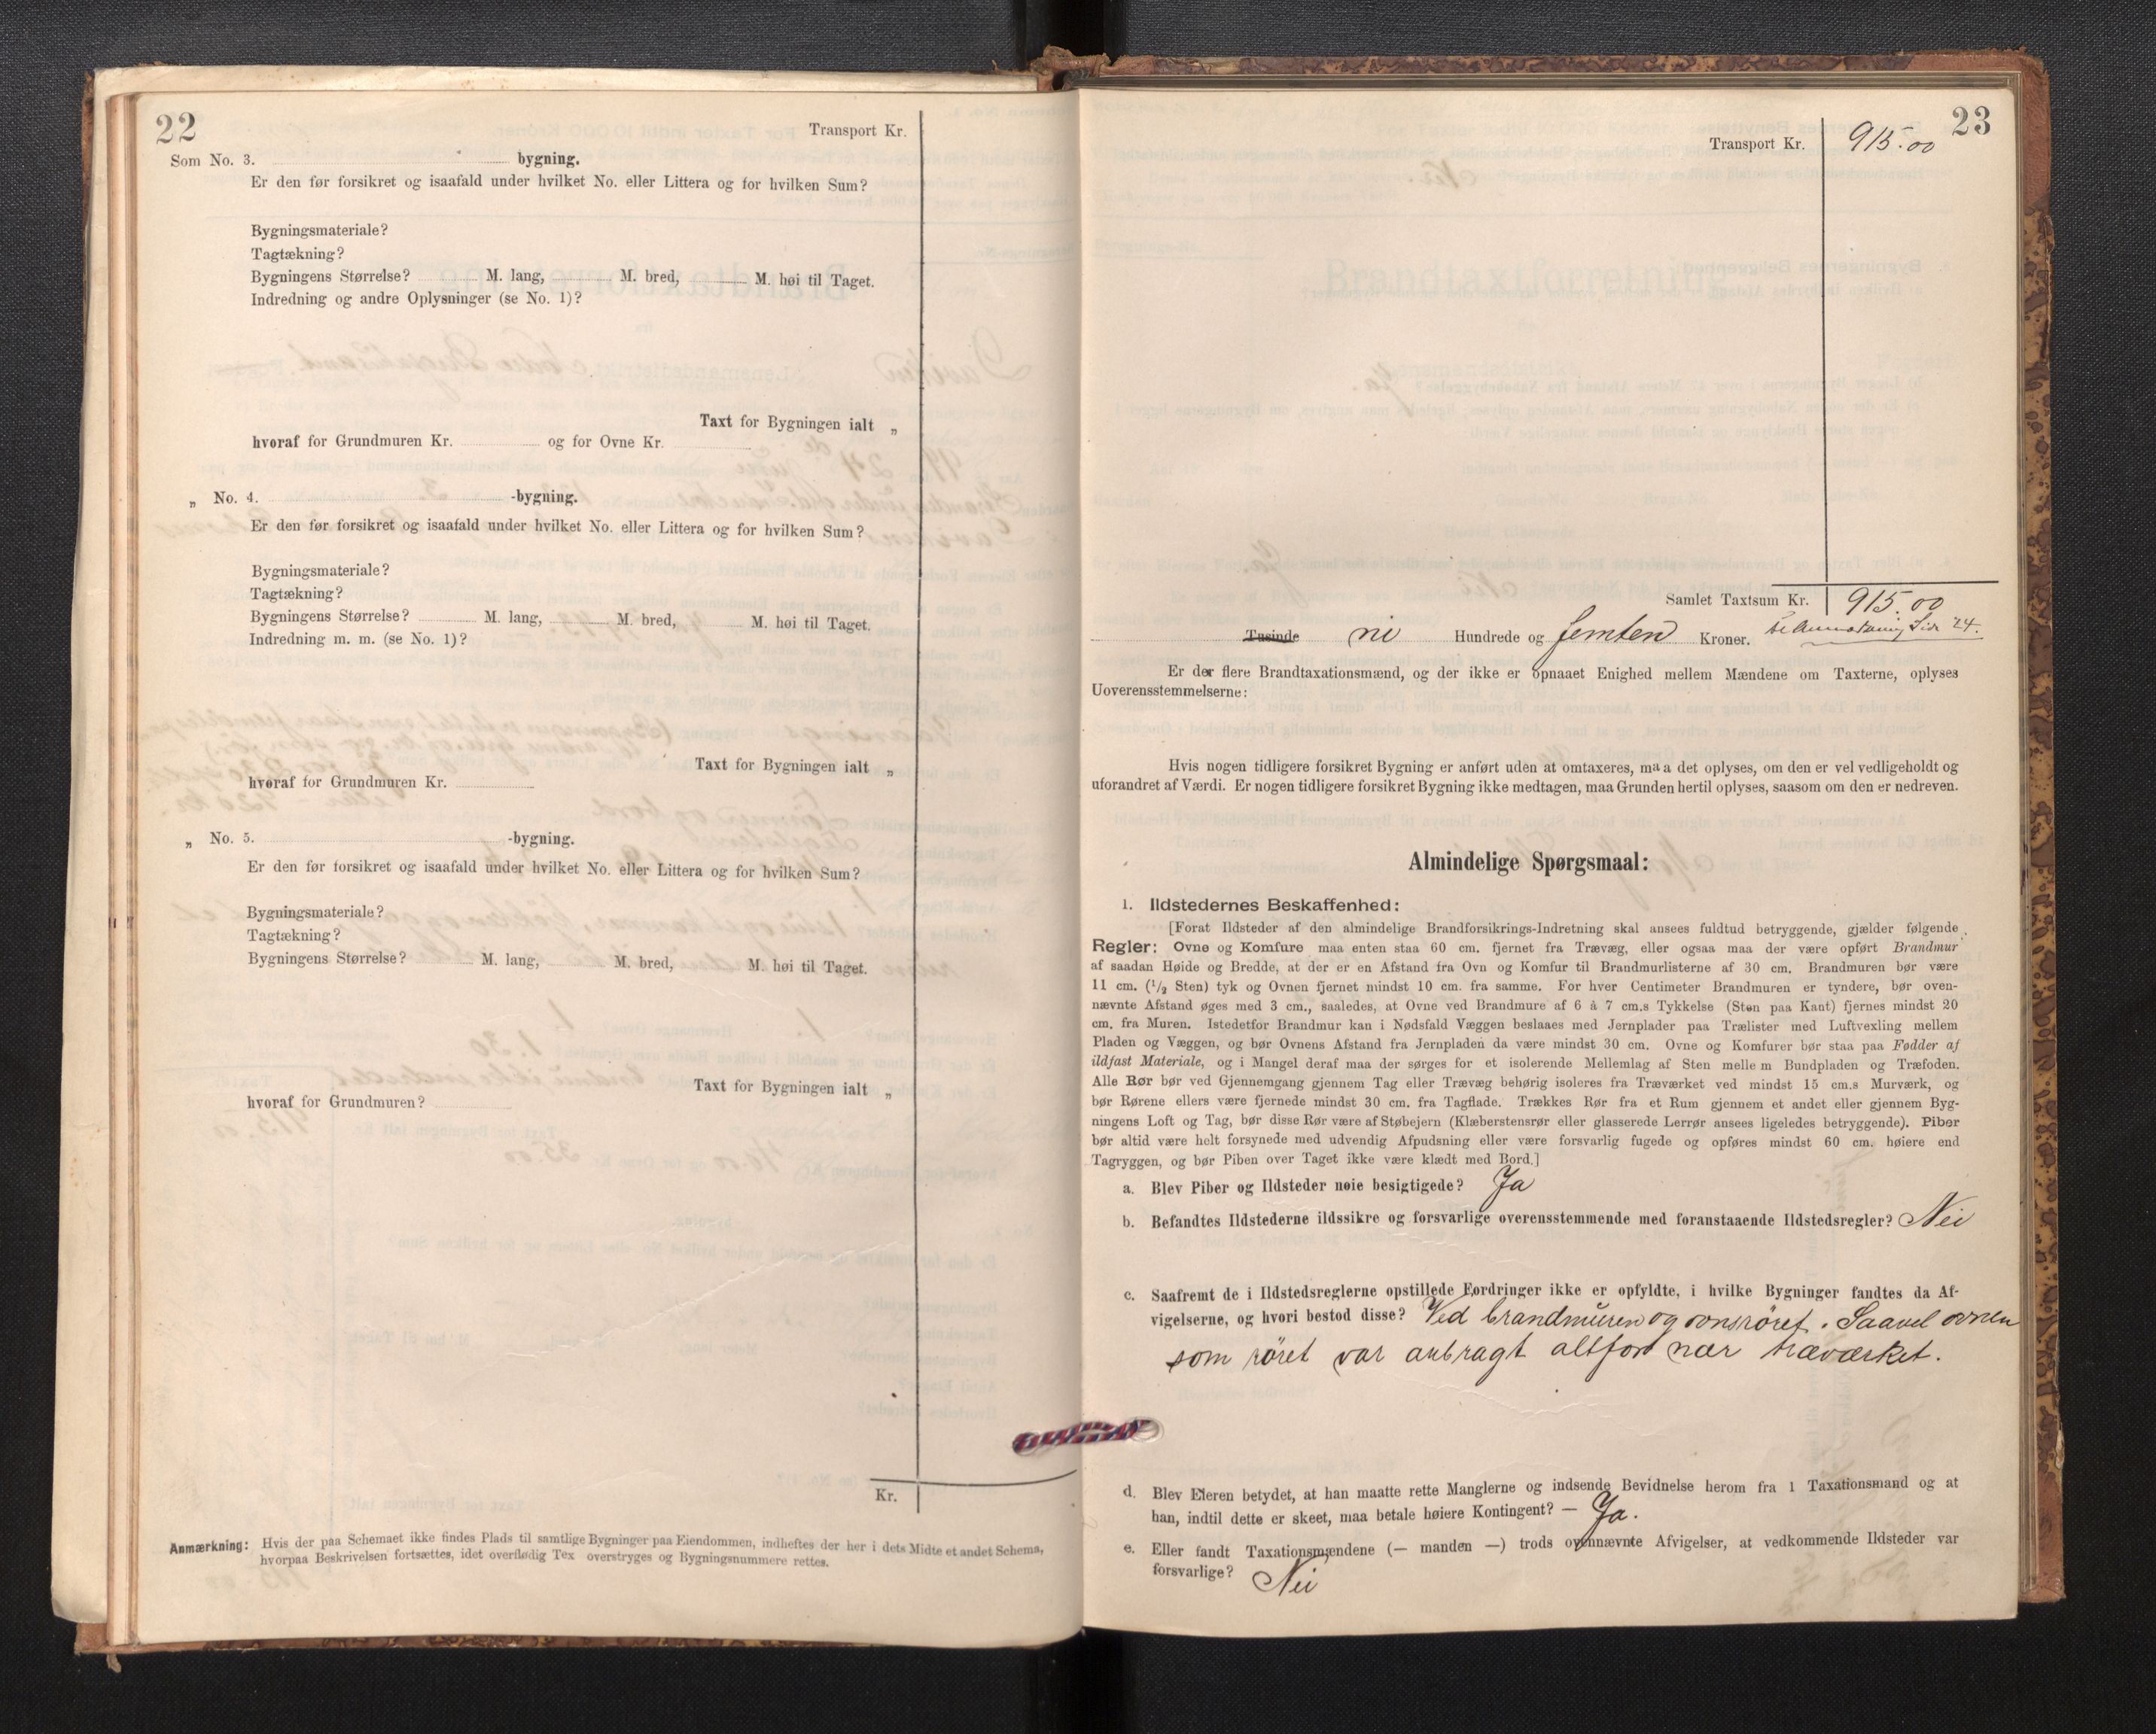 22
Transport Kr.
Som No. 3. bygning.
Er den før forsikret og isaafald under hvilket No. eller Littera og for hvilken Sum?
Bygningsmateriale?
Tagtækning?
Bygningens Størrelse? M. lang, M. bred, M. høi til Taget.
Indredning og andre Oplysninger (se No. 1)?
Taxt for Bygningen ialt „
hvoraf for Grundmuren Kr. og for Ovne Kr.
„ No. 4. -bygning.
Er den før forsikret og isaafald under hvilket No. eller Littera og for hvilken Sum?
Bygningsmateriale?
Tagtækning?
Bygningens Størrelse? M. lang, M. bred, M. høi til Taget.
Indredning m. m. (se No. 1)?
Taxt for Bygningen ialt „
hvoraf for Grundmuren Kr.
„ No. 5. -bygning.
Er den før forsikret og isaafald under hvilket No. eller Littera og for hvilken Sum?
Bygningsmateriale?
Tagtækning?
Bygningens Størrelse? M. lang, M. bred, M. høi til Taget.
Taxt for Bygningen ialt „
hvoraf for Grundmuren?
Kr.
Anmærkning: Hvis der paa Schemaet ikke findes Plads til samtlige Bygninger paa Eiendommen, indheftes der her i dets Midte et andet Schema,
hvorpaa Beskrivelsen fortsættes, idet overflødig Tex overstryges og Bygningsnummere rettes.
23
Transport Kr. 915.00
Samlet Taxtsum Kr. 915.00
Tusinde ni Hundrede og femten Kroner. Side 24.
Er der flere Brandtaxationsmænd, og der ikke er opnaaet Enighed mellem Mændene om Taxterne, oplyses
Uoverensstemmelserne:
Hvis nogen tidligere forsikret Bygning er anført uden at omtaxeres, maa det oplyses, om den er vel vedligeholdt og
uforandret af Værdi. Er nogen tidligere forsikret Bygning ikke medtagen, maa Grunden hertil oplyses, saasom om den er nedreven.
Almindelige Spørgsmaal:
1. Ildstedernes Beskaffenhed:
[Forat Ildsteder af den almindelige Brandforsikrings-Indretning skal ansees fuldtud betryggende, gjælder følgende
Regler: Ovne og Komfure maa enten staa 60 cm. fjernet fra Trævæg, eller ogsaa maa der være opført Brandmur
af saadan Høide og Bredde, at der er en Afstand fra Ovn og Komfur til Brandmurlisterne af 30 cm. Brandmuren bør være
11 cm. (1/2 Sten) tyk og Ovnen fjernet mindst 10 cm. fra samme. For hver Centimeter Brandmuren er tyndere, bør oven-
nævnte Afstand øges med 3 cm., saaledes, at Ovne ved Brandmure af 6 à 7 cm.s Tykkelse (Sten paa Kant) fjernes mindst 20
cm. fra Muren. Istedetfor Brandmur kan i Nødsfald Væggen beslaaes med Jernplader paa Trælister med Luftvexling mellem
Pladen og Væggen, og bør Ovnens Afstand fra Jernpladen da være mindst 30 cm. Ovne og Komfurer bør staa paa Fødder af
ildfast Materiale, og i Mangel deraf maa der sørges for et isolerende Mellemlag af Sten mellem Bundpladen og Træfoden.
Alle Rør bør ved Gjennemgang gjennem Tag eller Trævæg behørig isoleres fra Træværket ved mindst 15 cm.s Murværk, og
bør Rørene ellers være fjernede mindst 30 cm. fra Tagflade. Trækkes Rør fra et Rum gjennem et andet eller gjennem Byg-
ningens Loft og Tag, bør disse Rør være af Støbejern (Klæberstensrør eller glasserede Lerrør ansees ligeledes betryggende). Piber
bør altid være helt forsynede med udvendig Afpudsning eller være forsvarlig fugede og opføres mindst 60 cm. høiere end
Tagryggen, og bør Piben over Taget ikke være klædt med Bord.]
a. Blev Piber og Ildsteder nøie besigtigede? Ja
b. Befandtes Ildstederne ildssikre og forsvarlige overensstemmende med foranstaaende Ildstedsregler? Nei
c. Saafremt de i Ildstedsreglerne opstillede Fordringer ikke er opfyldte, i hvilke Bygninger fandtes da Af-
vigelserne, og hvori bestod disse? Ved brandmuren og ovnsröret. Saavel ovnen
som röret var anbragt altfor nær træværket.
d. Blev Eieren betydet, at han maatte rette Manglerne og indsende Bevidnelse herom fra 1 Taxationsmand og at
han, indtil dette er skeet, maa betale høiere Kontingent? — Ja.
e. Eller fandt Taxationsmændene (— manden —) trods ovennævnte Afvigelser, at vedkommende Ildsteder var
forsvarlige? Nei